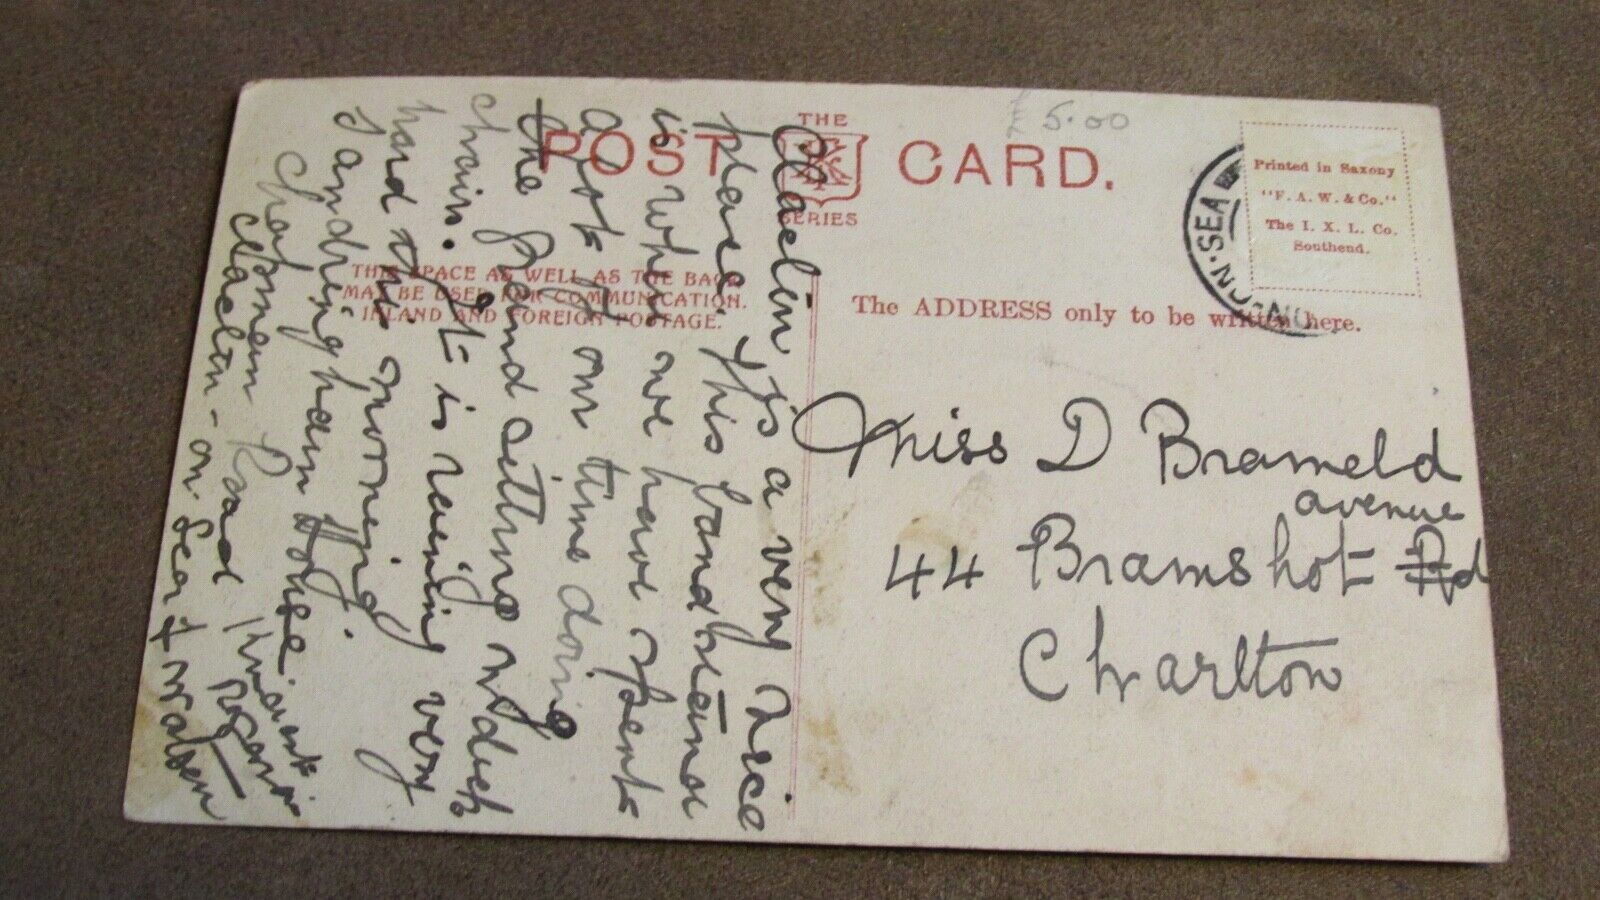 THE
POST CARD.
SERIES
5.00
Printed in Saxony
"F. A. W. & Co."
The I. X. L. Co.
Southend.
ON·SEA
THIS SPACE AS WELL AS THE BACK
MAY BE USED FOR COMMUNICATION.
INLAND AND FOREIGN POSTAGE.
The ADDRESS only to be written here.
Clacton is a very nice
place. This bandstand
is where we have spent
a lot of our time doing
the Grand sitting in deck
chairs. It is raining very
hard this morning
Sandringham House
Chapman Road
Clacton-on-Sea
Miss D Brameld
avenue
44 Bramshot Rd
Charlton